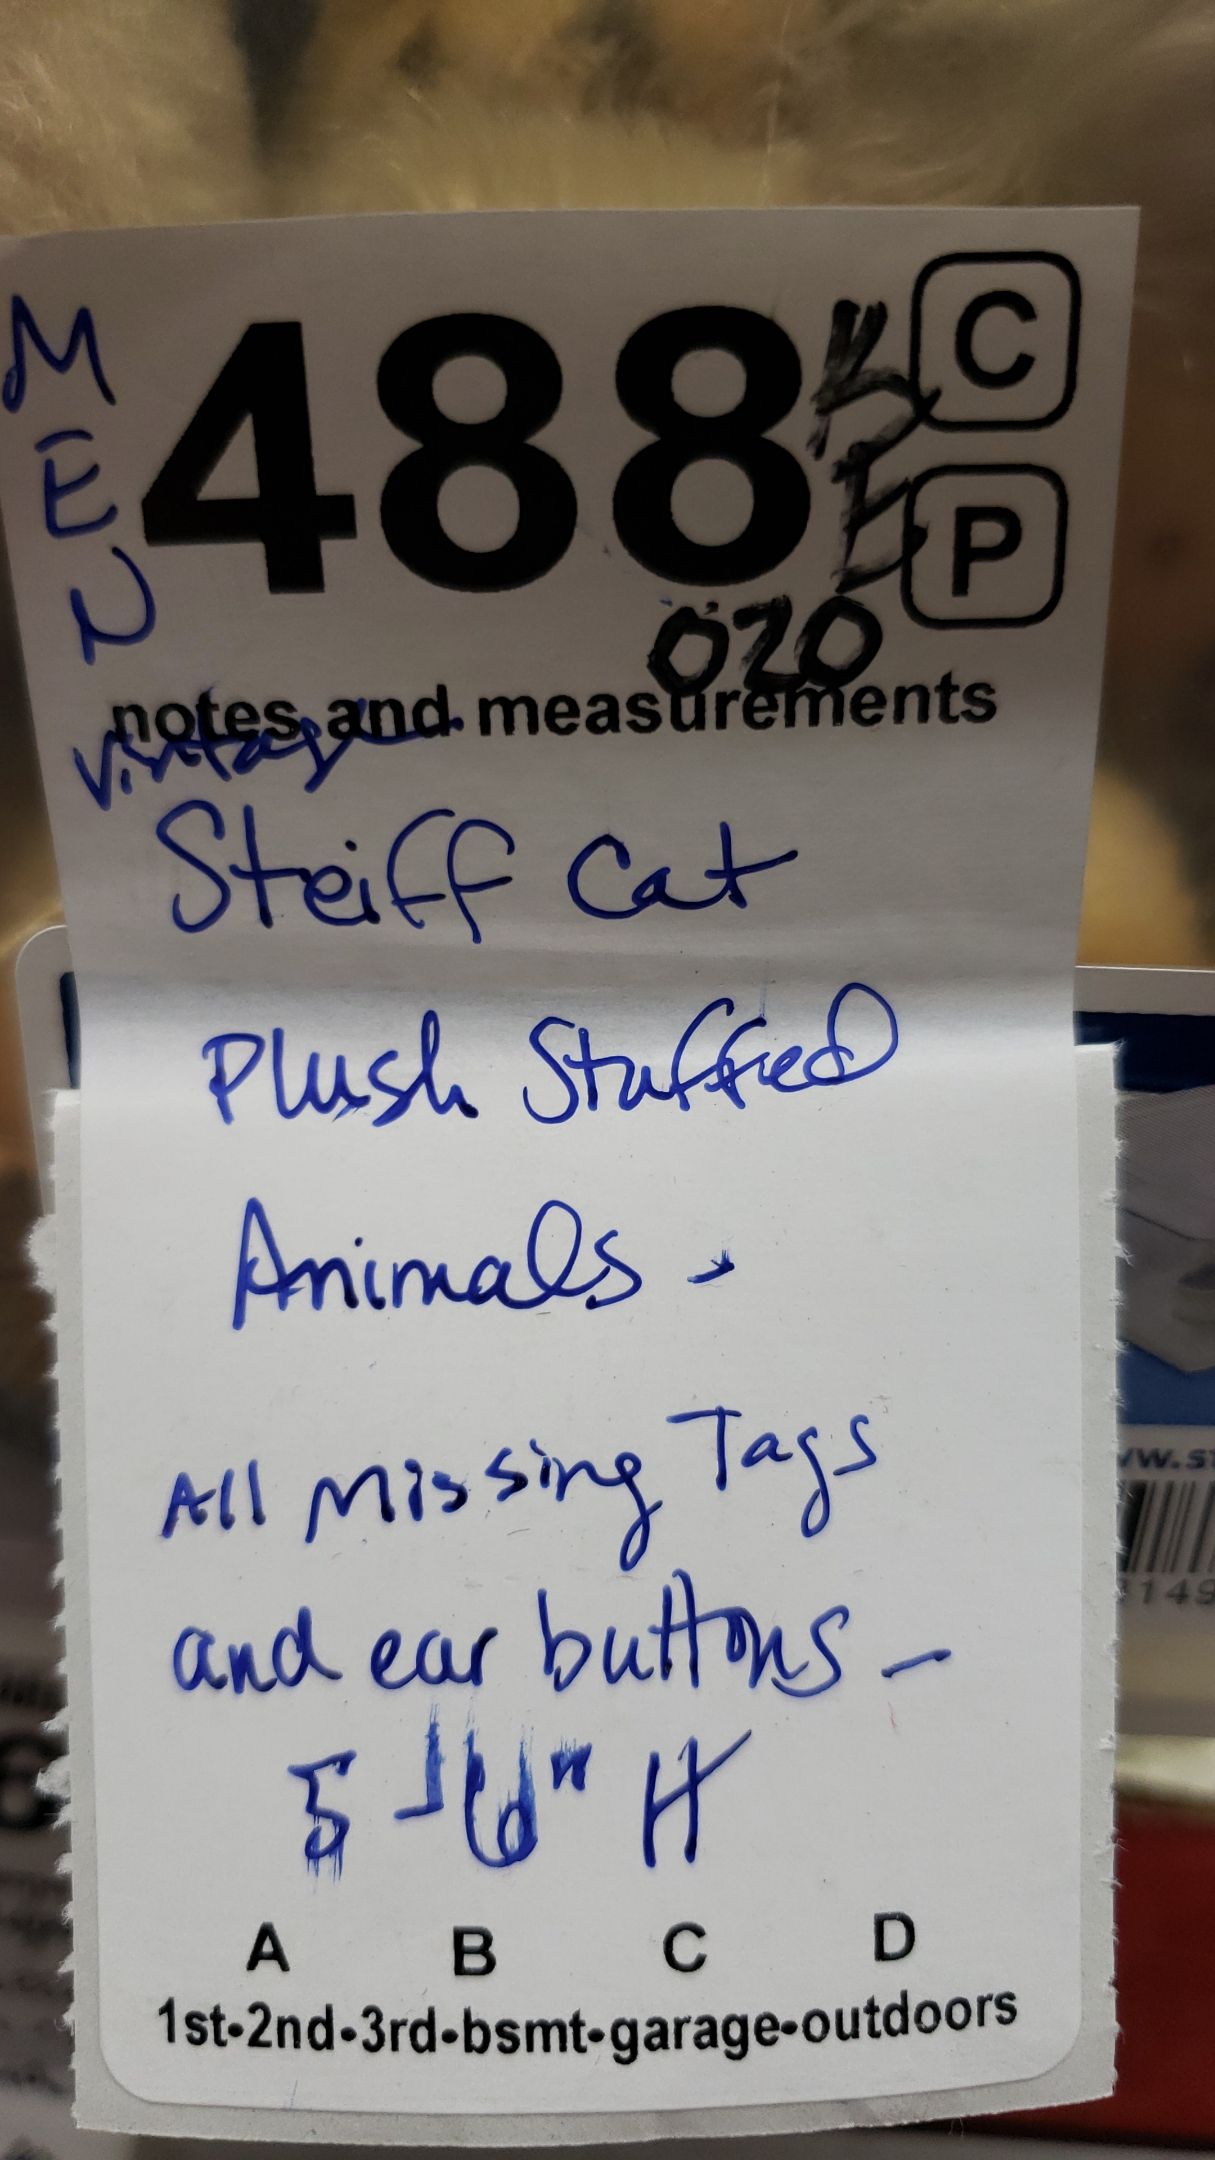 MEN
488
C
P
020
notes and measurements
Vintage
Steiff Cat
Plush Stuffed
Animals -
All Missing Tags
and ear buttons -
5 - 6" H
A B C D
1st•2nd•3rd•bsmt•garage•outdoors